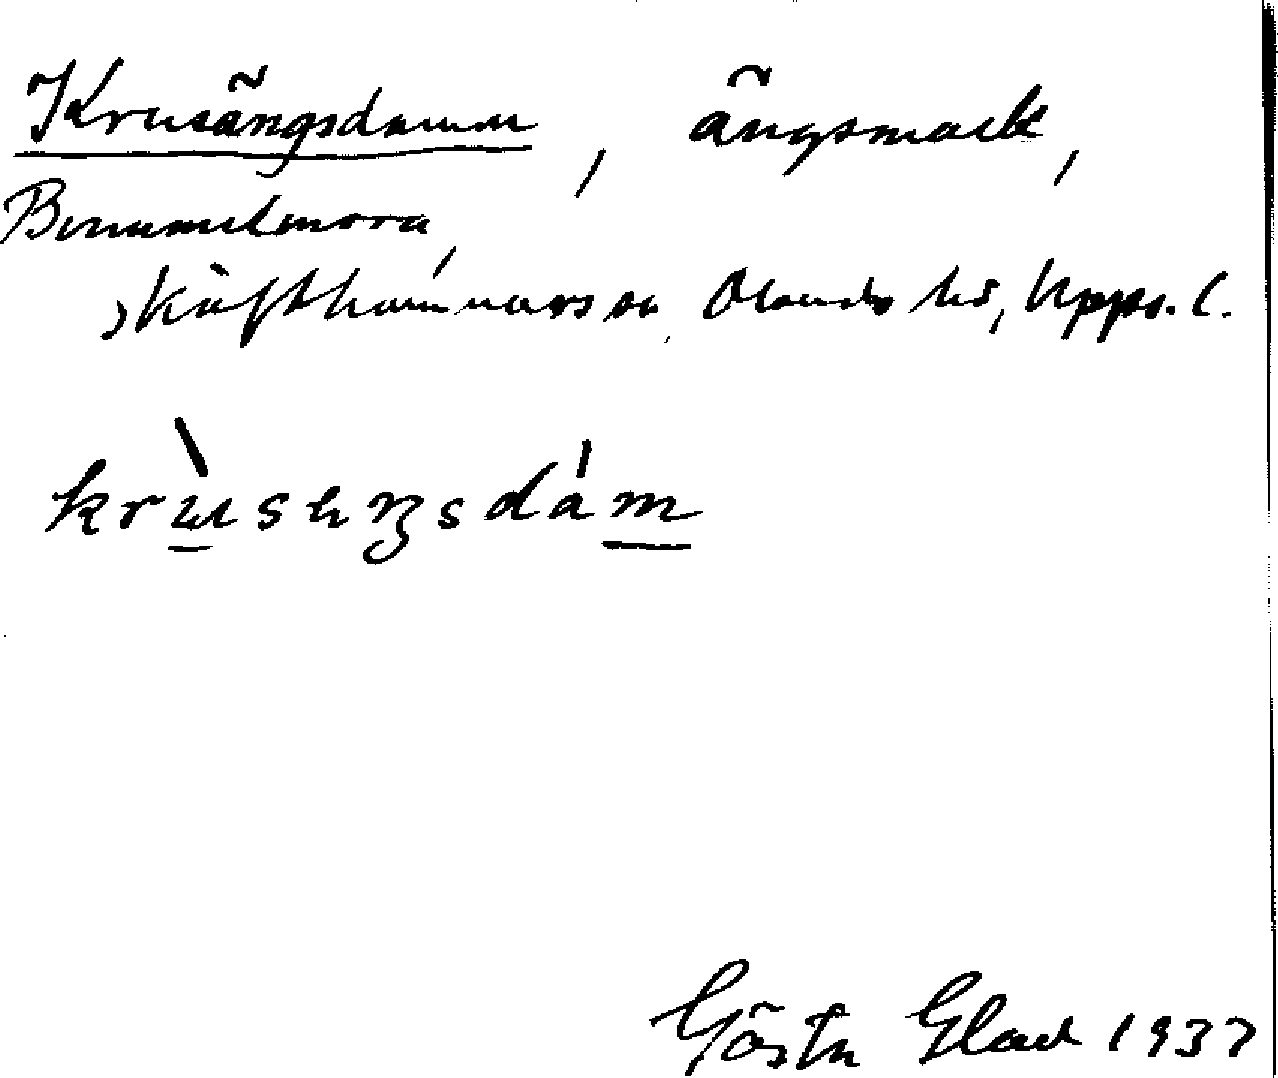 Krusängsdamm, ängsmark,
Skäfthammars sn, Olands hd, Upps. l.
krùseŋsdám
Gösta Glad 1937